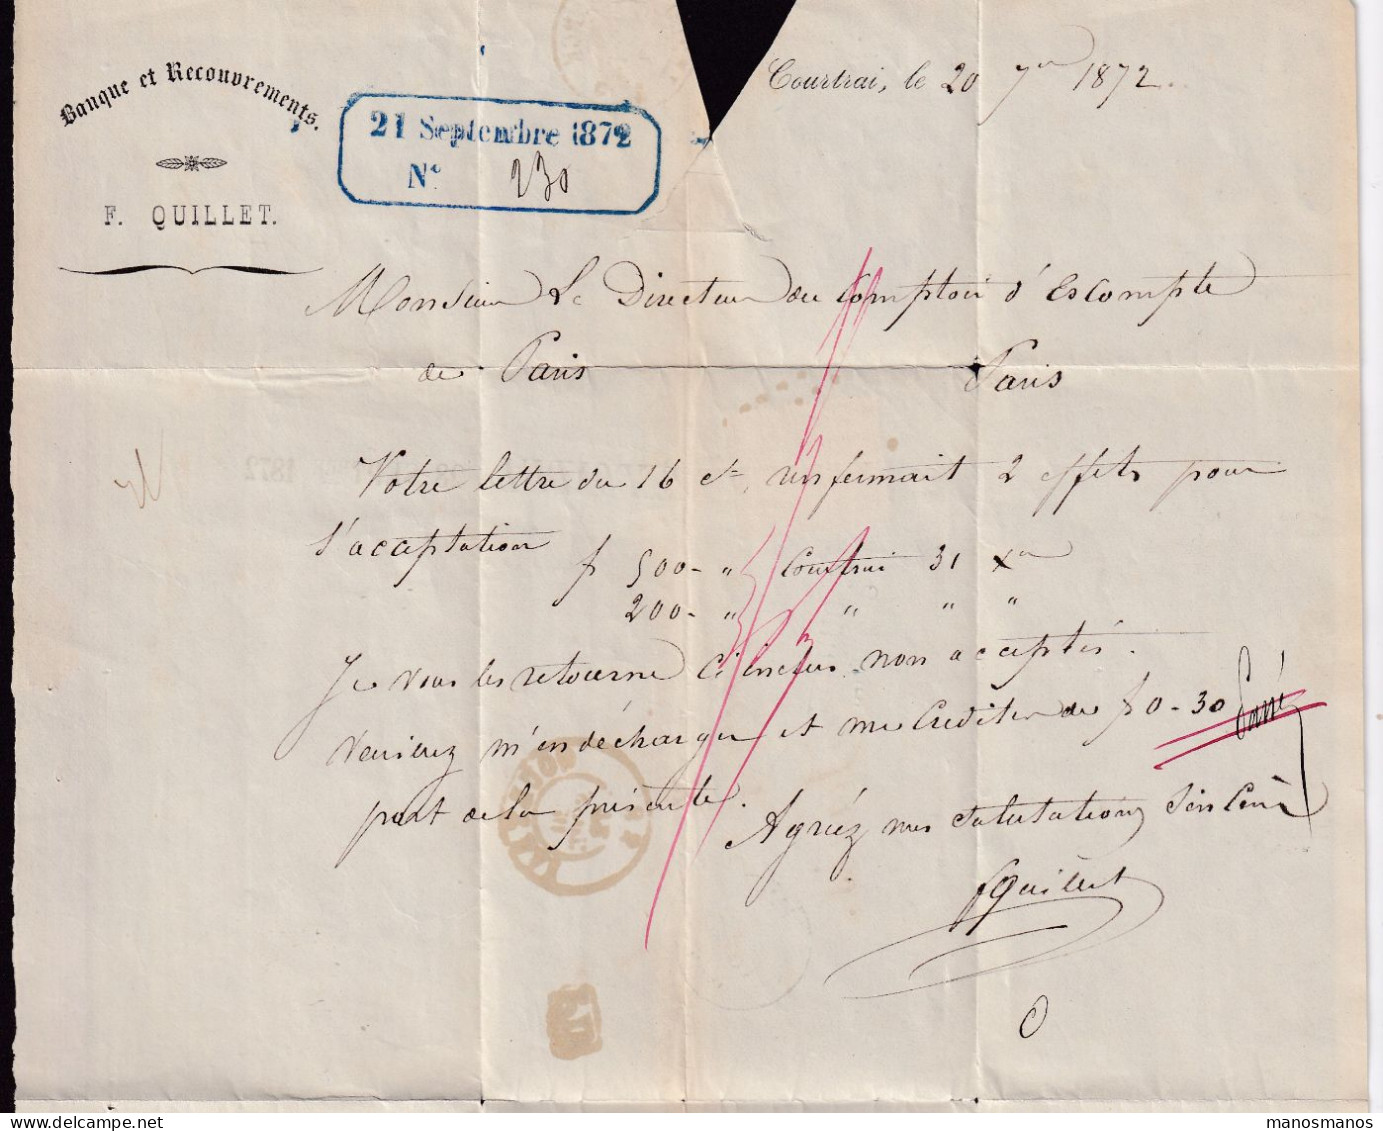 Banque et Recouvrements.
F. QUILLET.
21 Septembre 1872
N° 230
Courtrai, le 20 7bre 1872.
Monsieur Le Directeur du Comptoir d'Escompte
de Paris Paris
Votre lettre du 16 ct, renfermait 2 effets pour
l'acceptation
f 500 - " Courtrai 31 Xbre
200 - " " " "
Je vous les retourne ci inclus non acceptés.
Veuillez m'en décharger et me créditer de f 0 - 30
port de la présente.
Agréez mes salutations sincères
FQuillet
1872
manosmanos